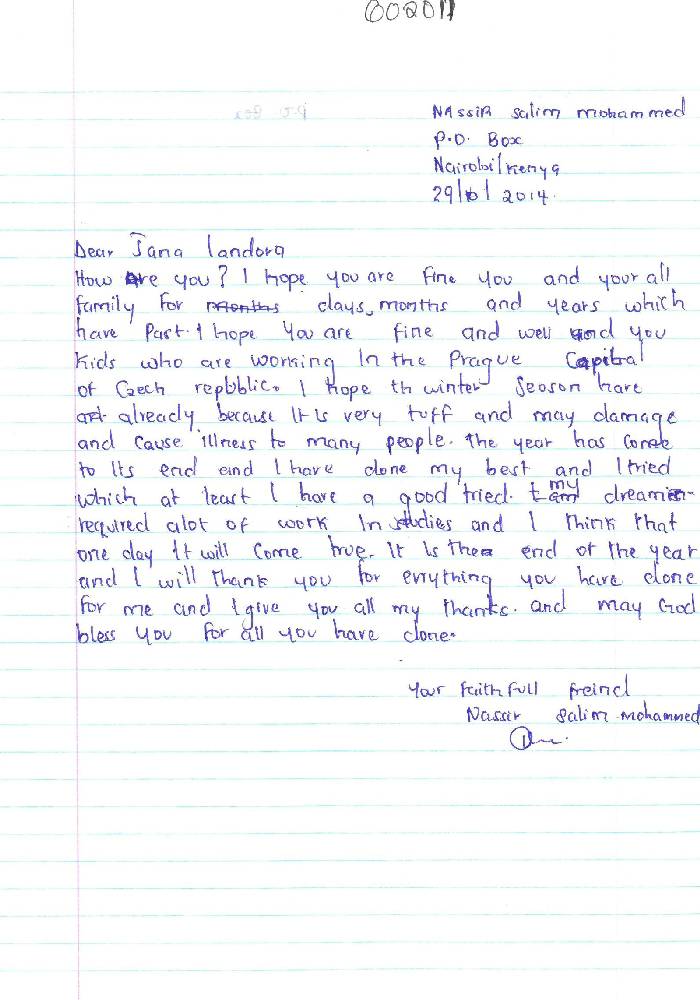 002017
NAssiR salim mohammed
P.O. Box
Nairobi/kenya
29/10/2014.
Dear Jana landora
How Are you? I hope you are fine you and your all
family for months days, months and years which
have Past. I hope You are fine and well and you
kids who are working In the Prague Capital
of Czech repbblic. I hope th winter season have
already because It is very tuff and may damage
and cause illness to many people. the year has come
to Its end and I have done my best and I tried
which at least I have a good tried. my dream
required alot of work In studies and I think that
one day It will come true. It Is the end of the year
and I will thank you for evrything you have done
for me and I give you all my thanks. and may God
bless you for all you have done.
Your faithfull freind
Nassir salim mohammed